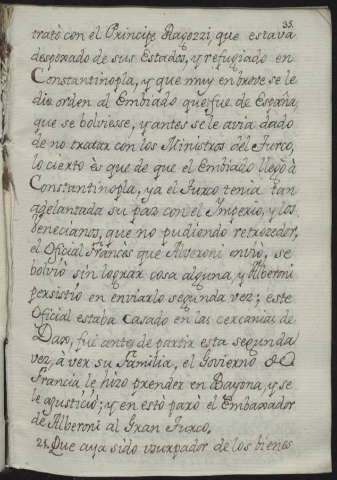 35.
tratò con el Principe Ragozzi, que estava
despoxado de sus Estados, y refugiado en
Constantinopla, y que muy en breve se le
dio orden al Embiado que fue de España
que se bolviesse, y antes se le avia dado
de no tratar con los Ministros del Turco,
lo cierto ès que de que el Embiado llegò à
Constantinopla, ya el Turco tenia tan
adelantada su paz con el Imperio, y los
Benecianos, que no pudiendo retrozeder,
el Oficial Francès que Alveroni enviò, se
bolviò sin lograr cosa alguna, y Alberoni
persistiò en enviarlo segunda vez; este
Oficial estaba Casado en las cercanias de
Dax, fuè antes de partir esta segunda
vez, à ver su Familia, el Govierno de
Francia le hizo prender en Bayona, y se
le ajustició; y en estò parò el Embaxador
de Alberoni al Gran Turco.
21. Que aya sido usurpador de los bienes